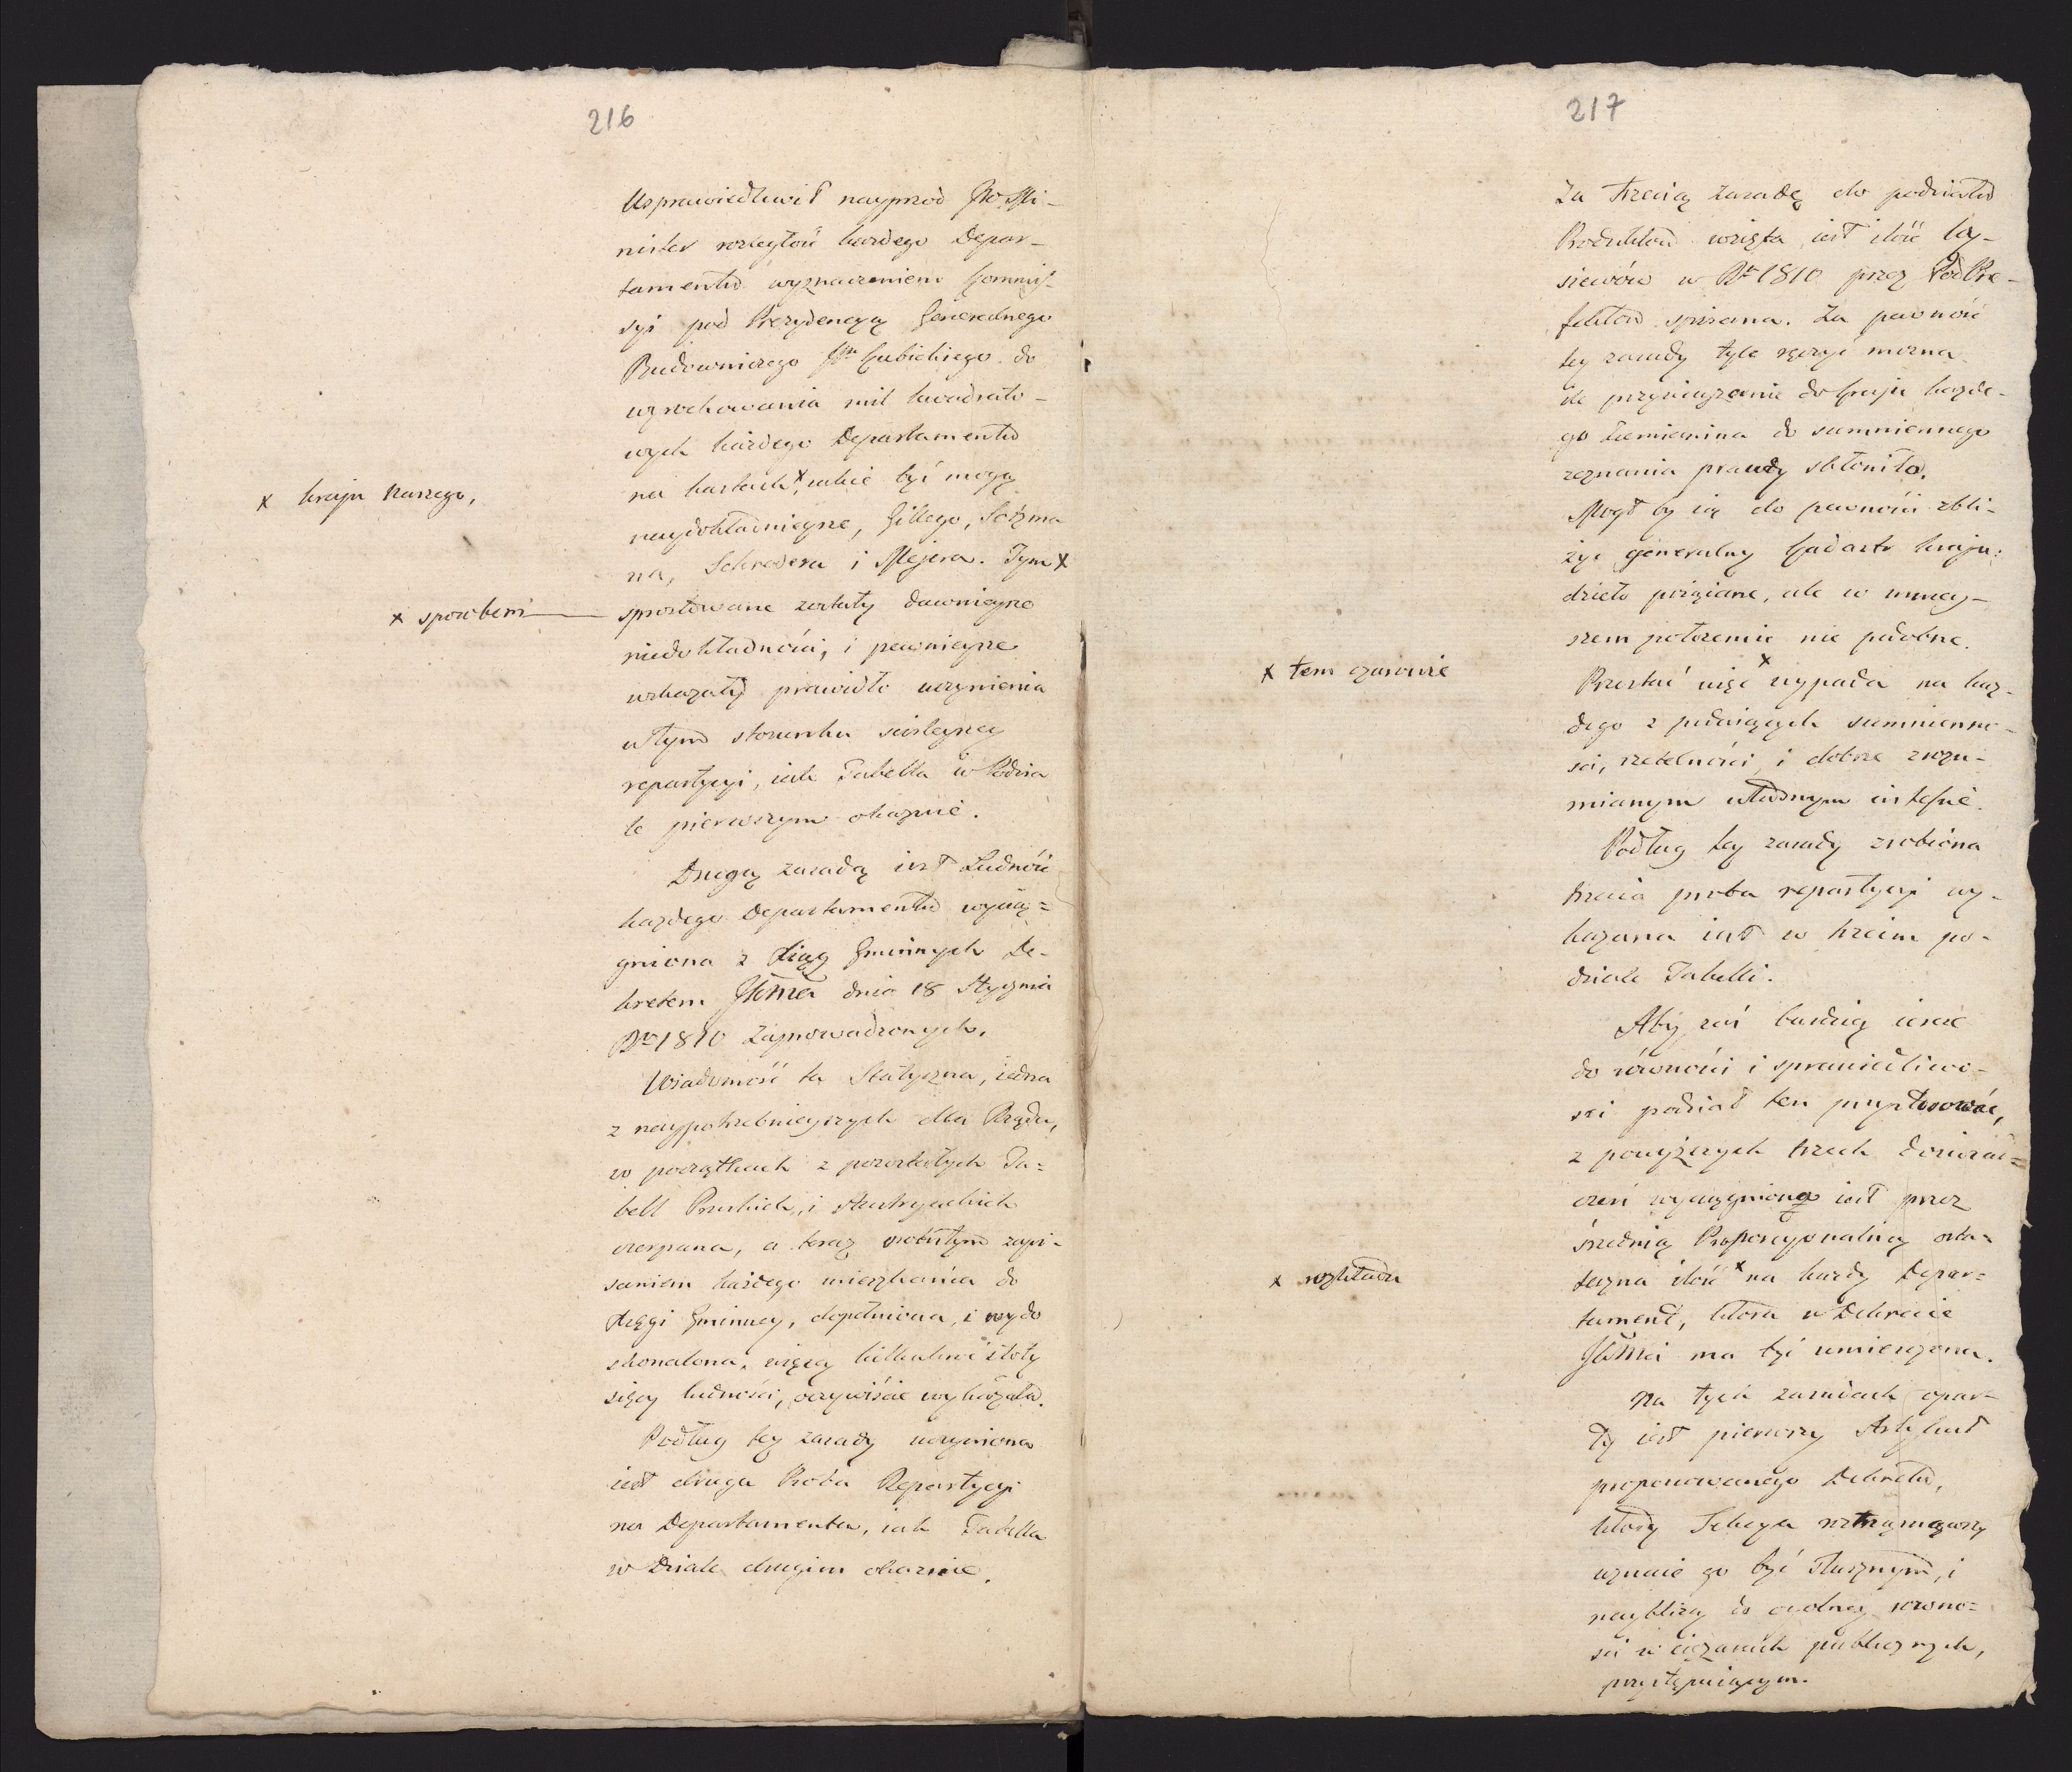 216
Usprawiedliwił nayprzod JW. Mi-
nister rozległość każdego Depar-
tamentu wyznaczeniem Kommis-
syi pod Prezydencyą Generalnego
Budowniczego JPn Kubickiego do
wyrochowania mil kwadrato-
wych każdego Departamentu
x kraju naszego,
na kartach x, iakie być mogą
naydokładnieysze, Gillego, Sotzma
na, Schredera i Mejera. Tym x
x sposobem
sprostowane zostały dawnieysze
niedokładności, i pewnieysze
wskazały prawidło uczynienia
w tym stosunku scisleyszey
repartycyi, iak Tabella w Podzia
le pierwszym okazuie.
Drugą zasadą iest Ludność
każdego Departamentu wycią=
gniona z Xiąg Gminnych De-
kretem JKMci dnia 18 Stycznia
Ru 1810 zaprowadzonych.
Wiadomość ta Statyczna, iedna
z naypotrzebnieyszych dla Rządu,
w początkach z pozostałych Ta=
bell Pruskich, i Austryackich
czerpana, a teraz osobistym zapi-
saniem każdego mieszkańca do
Xięgi Gminney, dopełniona, i wydo
skonalona, więcey kilkakroć stoty
sięcy ludności, oczywiście wykazała.
Podług tey zasady uczyniona
iest druga Proba Repartycyi
na Departamenta, iak Tabella
w Dziale drugim okazuie.
217
Za trzecią zasadę do podziału
Produktow wzięta iest ilość wy-
siewów w Ru 1810 przez PodPre-
fektow spisana. Za pewność
tey zasady tyle ręczyć można
ile przywiązanie do kraju każde-
go Ziemianina do sumniennego
zeznania prawdy skłoniło.
Mogł by się do pewności zbli-
żyć generalny Kadastr kraju:
dzieło pożądane, ale w niniey-
szem położeniu nie podobne.
x tem czasowie
Przestać więc x wypada na każ-
dego z podaiących sumienno-
sci, rzetelności i dobrze zrozu-
mianym własnym interesie.
Podług tey zasady zrobiona
trzecia proba repartycyi wy-
kazana iest w trzecim po-
dziale Tabelli.
Aby zaś bardziey ieszcze
do równości i sprawiedliwo-
sci podział ten przystosować,
z powyższych trzech doświad=
czeń wyciągniona iest przez
średnią Proporcyonalną osta=
x rozkładu
teczna ilość x na każdy Depar=
tament, ktora w Dekrecie
JKMci ma być umieszczona.
Na tych zasadach opar-
ty iest pierwszy Artykuł
proponowanego Dekretu,
ktory Sekcya roztrząsnąwszy
uznaie go być słusznym, i
naybliżey do ogolney rowno=
sci w ciężarach publicznych,
przystępuiącym.